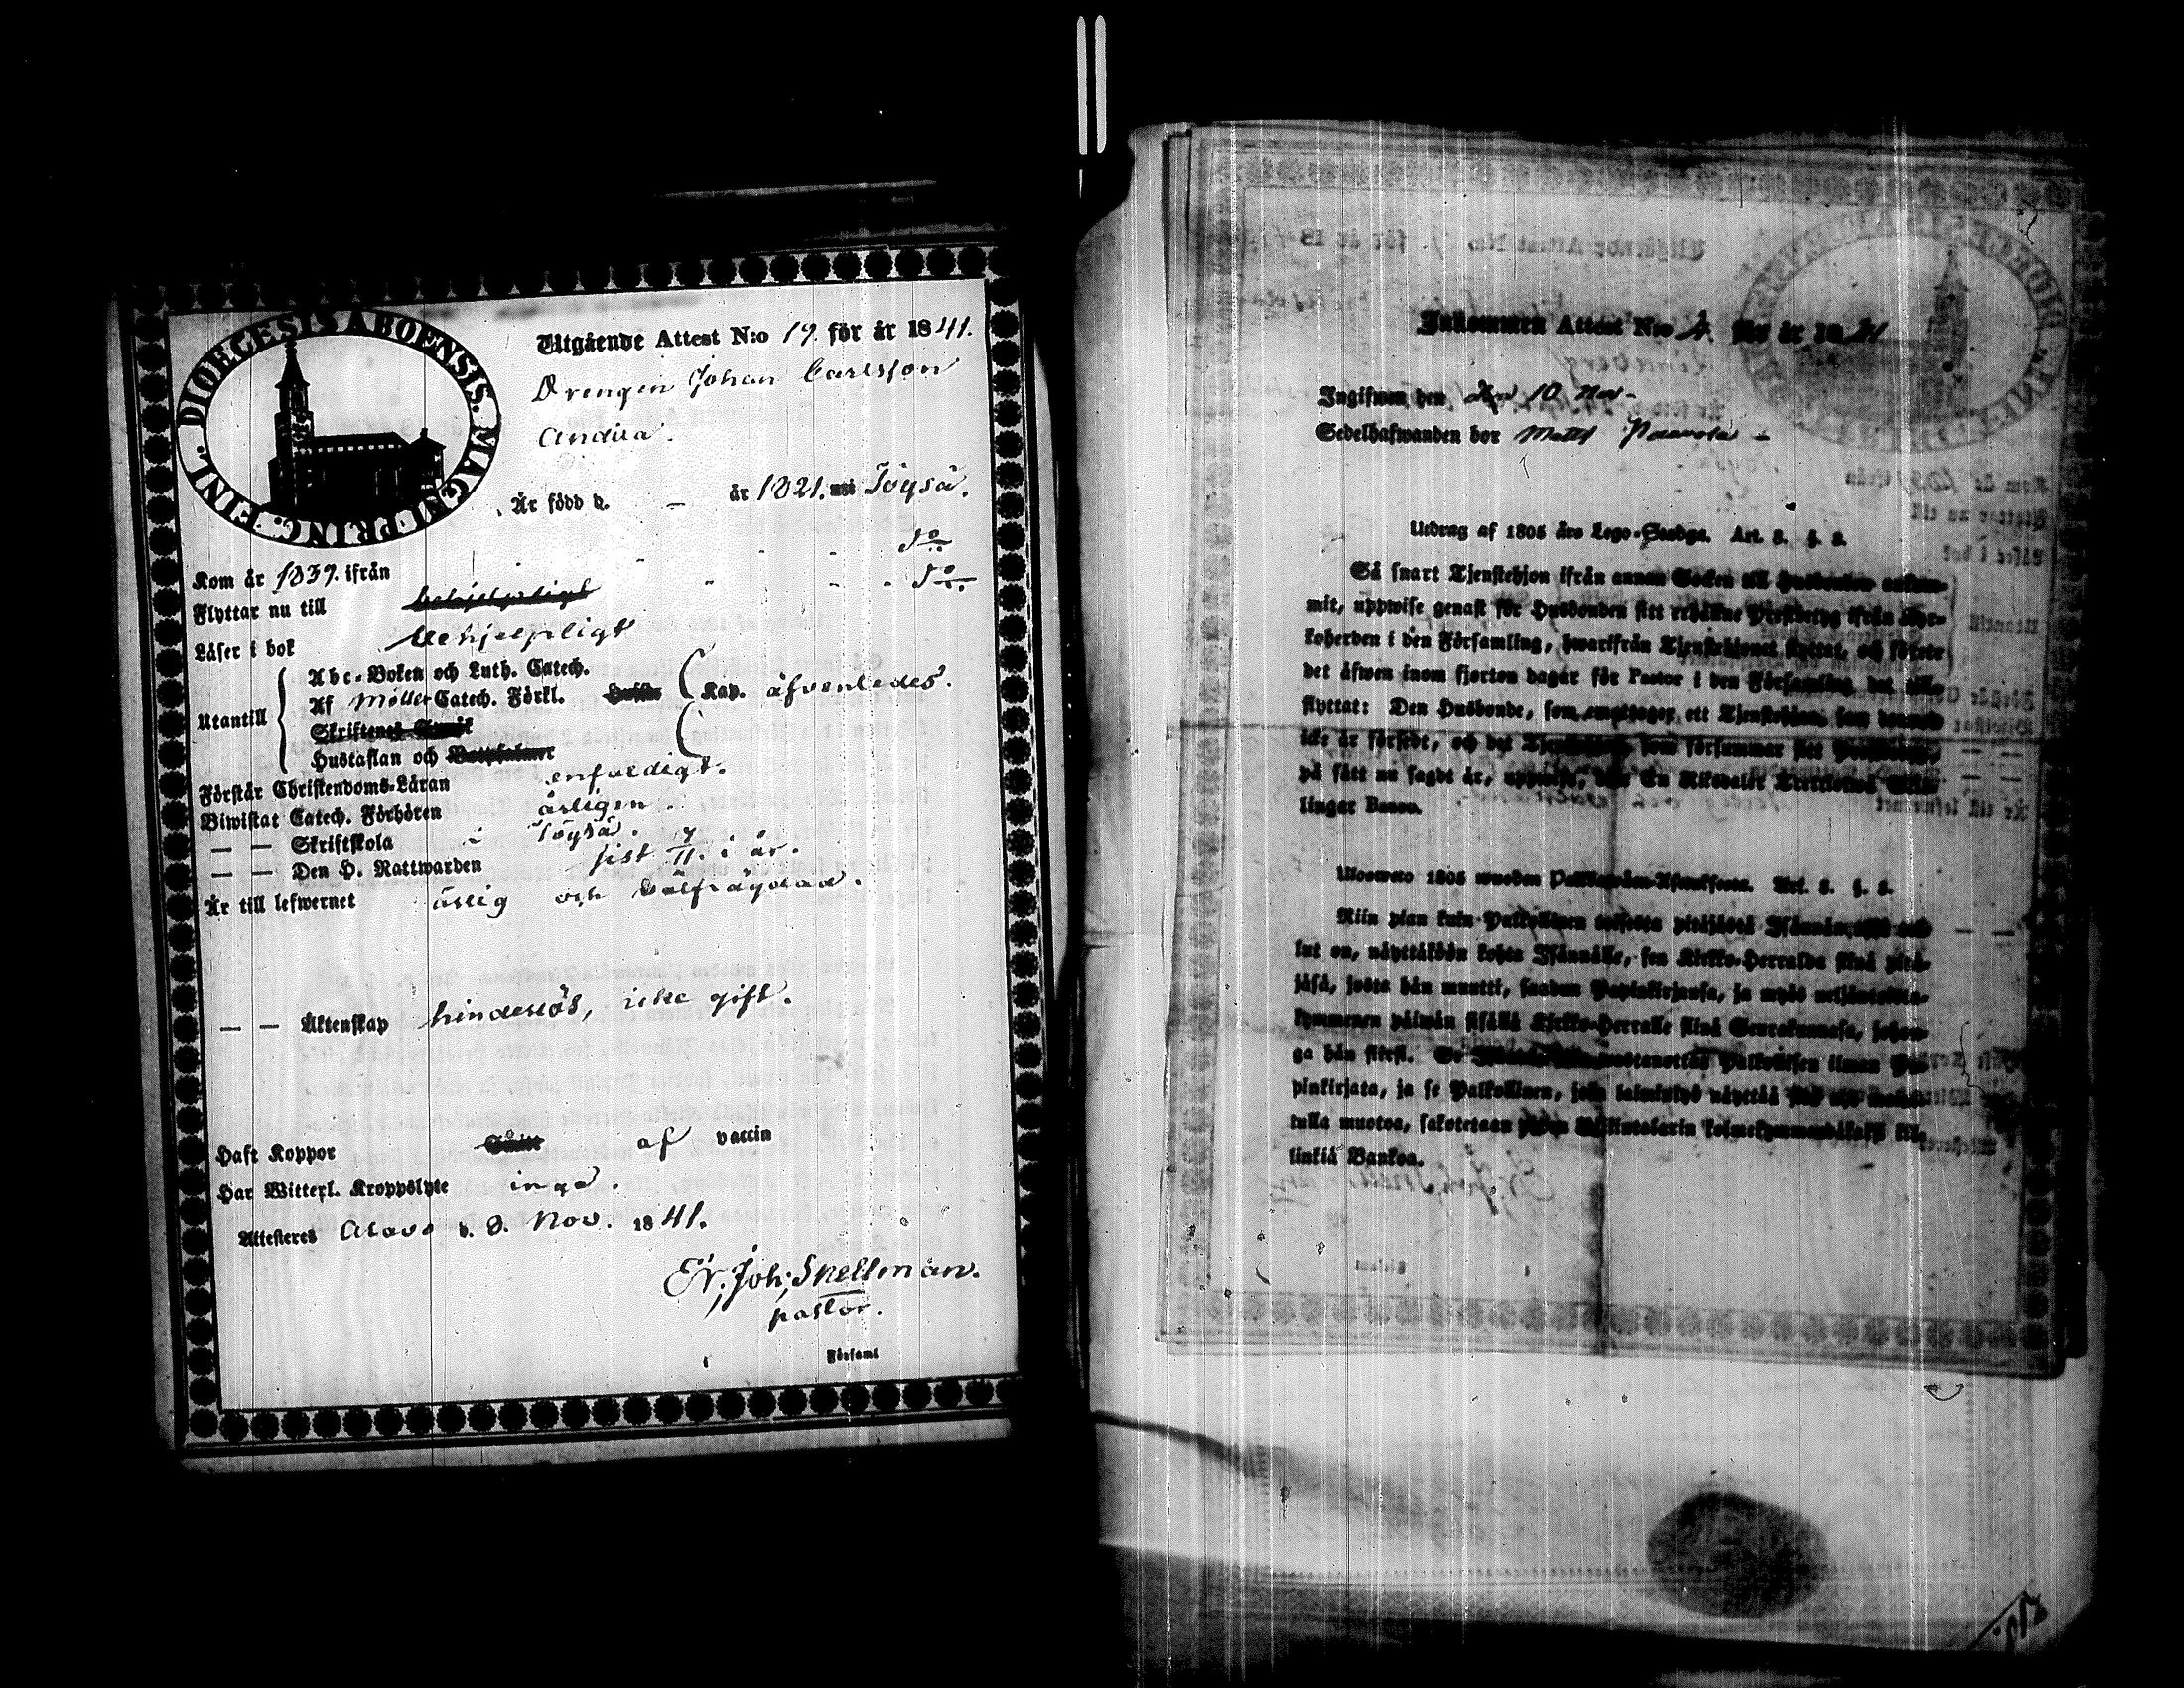 DIOECESIS ABOENSIS. MAGNI PRINC. FINL.
Utgående Attest N:o 19. för år 1841.
Drengen Johan Carlsson
Andila.
Är född d. — år 1821. uti Töysä.
Kom år 1839. ifrån - - - do
Flyttar nu till behjelpligt - - - do
Läser i bok behjelpligt
Utantill
Abc-Boken och Luth. Catech.
Af Möller Catech. Förkl. Kap. äfvenledes.
Skriftenes
Hustaflan och
Förstår Christendoms-Läran enfaldigt.
Biwistat Catech. Förhören årligen.
— — Skriftskola i Töysä.
— — Den H. Nattwarden sist i år.
Är till lefwernet ärlig och välfrägdad.
— — Äktenskap hinderlös, icke gift.
Haft Koppor af vaccin
Har Witterl. Kroppslyte inga.
Attesteres Alavo d. 8. Nov. 1841.
Er. Joh. Snellman.
pastor.
Församl
Inkommen Attest N:o för år 18
Ingifwen den 10 Nov.
Sedelhafwanden bor Matts
Utdrag af 1805 års Lego-Stadga. Art. 3. §. 2.
Så snart Tjenstehjon ifrån annan Socken till Husbonden ankom-
mit, uppwise genast för Husbonden sitt erhållne Prestbetyg ifrån Kyr-
koherden i den Församling, hwarifrån Tjenstehjonet flyttat, och förete
det äfwen inom fjorton dagar för Pastor i den Församling, det till-
flyttat: Den Husbonde, som emottager ett Tjenstehjon, som dermed
icke är försedt, och det Tjenstehjon, som försummar sitt
på sätt nu sagdt är, uppwisa, böte En Riksdaler Trettiotwå Skil-
lingar Banco.
Ulosweto 1805 wuoden Palkkawäen-Asetuksesta. Art. 3. §. 2.
Niin pian kuin Palkollinen toisesta pitäjästä Isännän tykö tul-
lut on, näyttäköön kohta Isännälle, sen Kirkko-Herralda siinä pitä-
jäsä, josta hän muutti, saadun Papinkirjansa, ja myös neljäntoista-
kymmenen päiwän sisällä Kirkko-Herralle siinä Seurakunnasa, johon-
ga hän siirsi. Se wastanottaa Palkollisen ilman Pa-
pinkirjata, ja se Palkollinen, joka laiminlyö näyttää
tulla muotoa, sakotetaan Riikintalarin kolmekymmendäkaksi kil-
linkiä Bankoa.